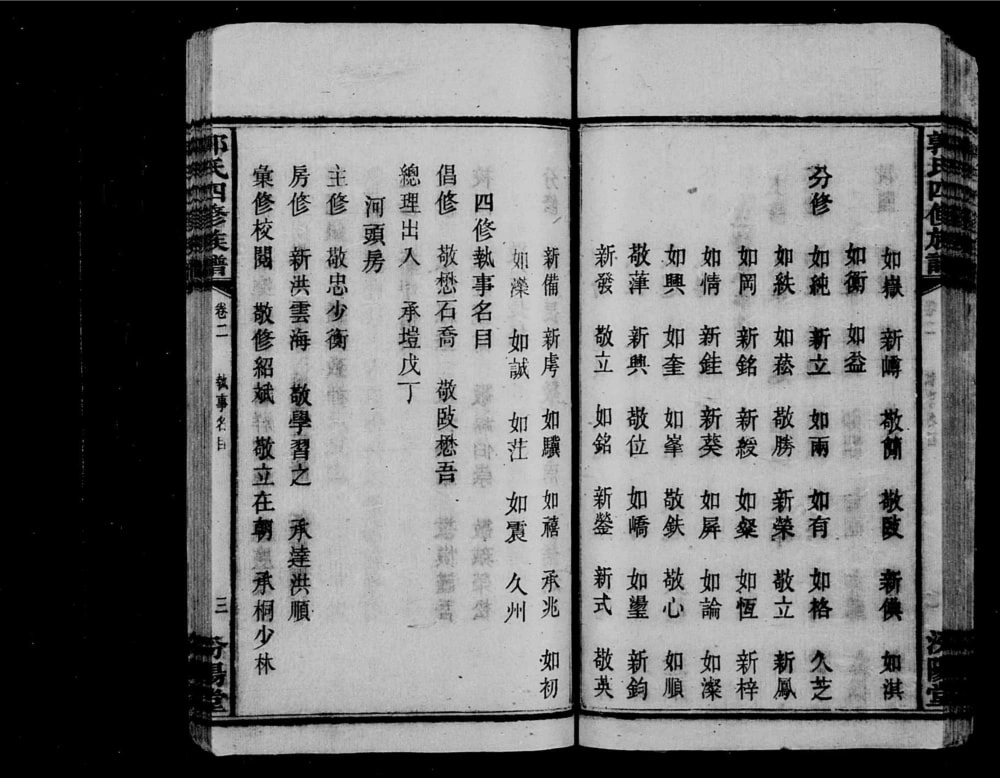 如嶽 新嶹 敬簡 敬敺 新僙 如淇
如衡 如益
芬修 如純 新立 如雨 如有 如格 久芝
如紩 如菘 敬勝 新榮 敬立 新鳳
如岡 新銘 新綬 如粲 如恆 新梓
如情 新銈 新葵 如屏 如論 如濚
如興 如奎 如峯 敬鈇 敬心 如順
敬葏 新興 敬位 如嶠 如璺 新鈞
新發 敬立 如銘 新鎣 新式 敬英
新備 新虏 如驥 如禧 承兆 如初
如濼 如誠 如茳 如震 久州
四修執事名目
倡修 敬懋石喬 敬敺懋吾
總理出入 承塏戊丁
河頭房
主修 敬忠少衡
房修 新洪雲海 敬學習之 承達洪順
彙修校閱 敬修紹斌 敬立在朝 承桐少林
郭氏四修族譜 卷二 執事名目 三 汾陽堂